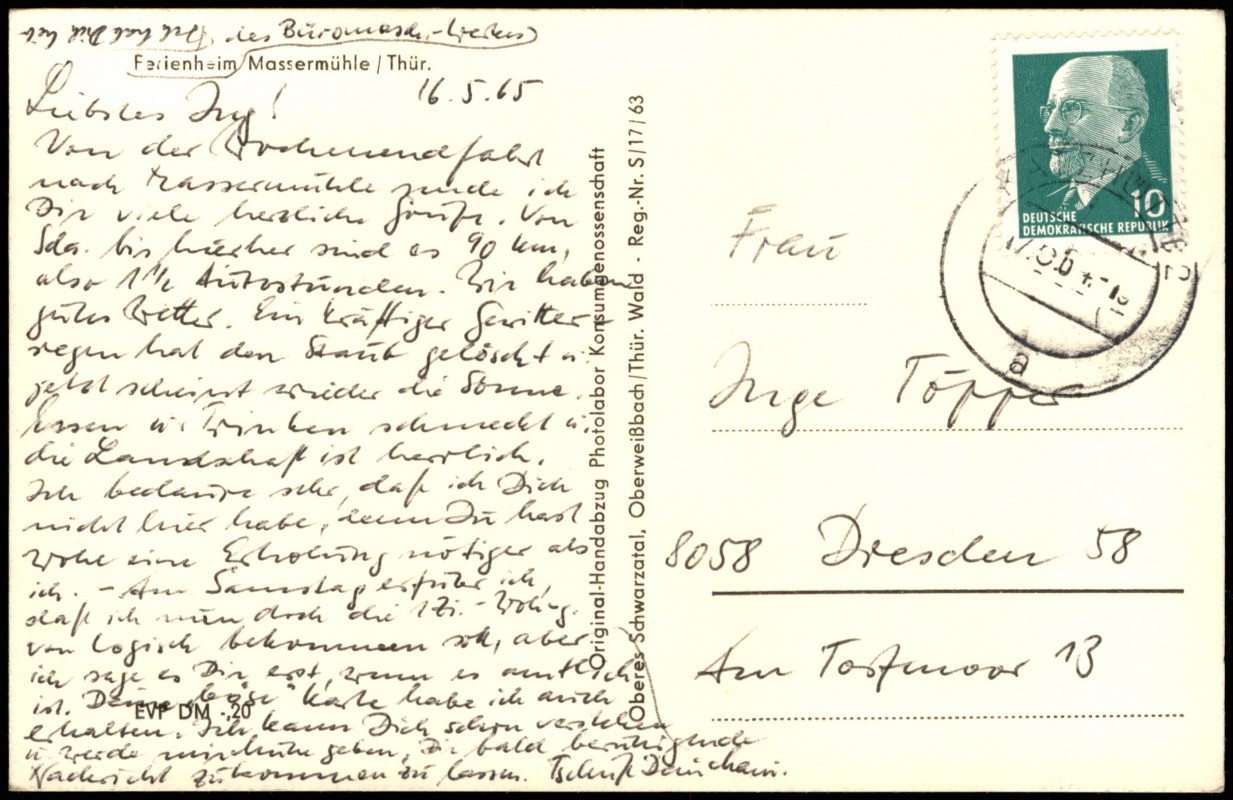 des Büromasch.-Werkes
Ich hab Dich lieb
Ferienheim Massermühle / Thür.
16.5.65
Liebstes Ing!
Von der Wochenendfahrt
nach Massermühle sende ich
Dir viele herzliche Grüße. Von
Sda. bis hierher sind es 90 km,
also 1½ Autostunden. Wir haben
gutes Wetter. Ein kräftiger Gewitter-
regen hat den Staub gelöscht u.
jetzt scheint wieder die Sonne.
Essen u. Trinken schmeckt u.
die Landschaft ist herrlich.
Ich bedaure sehr, daß ich Dich
nicht hier habe, denn Du hast
wohl eine Erholung nötiger als
ich. – Am Samstag erfuhr ich,
daß ich nun doch die 1 Zi.-Wohng.
von Logisch bekommen soll, aber
ich sage es Dir erst, wenn es amtlich
ist. Deine "böse" Karte habe ich auch
erhalten. Ich kann Dich schon verstehen
u. werde mir Mühe geben, Dir bald beruhigende
Nachricht zukommen zu lassen. Tschüß
EVP DM -,20
Original-Handabzug Photolabor Konsumgenossenschaft
Oberes Schwarzatal, Oberweißbach/Thür. Wald - Reg.-Nr. S/17/63
10
DEUTSCHE
DEMOKRATISCHE REPUBLIK
a
Frau
Inge Töpfer
8058 Dresden 58
Am Torfmoor 13